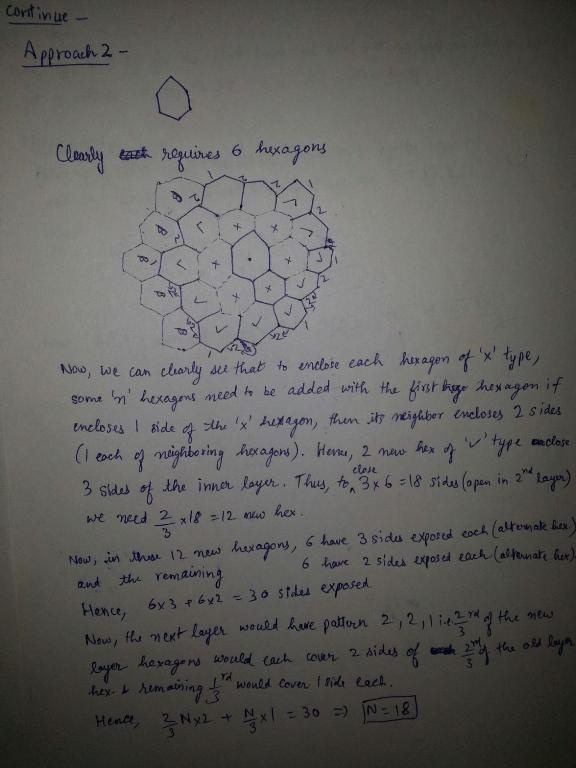 continue -
Approach 2 -
Clearly requires 6 hexagons
Now, we can clearly see that to enclose each hexagon of 'x' type,
some 'n' hexagons need to be added with the first hexagon if
encloses 1 side of the 'x' hexagon, then its neighbor encloses 2 sides
(1 each of neighboring hexagons). Hence, 2 new hex of '✓' type enclose
3 sides of the inner layer. Thus, to close 3x6 = 18 sides (open in 2nd layer)
we need 2/3 x18 = 12 new hex.
Now, in these 12 new hexagons, 6 have 3 sides exposed each (alternate hex.)
and the remaining 6 have 2 sides exposed each (alternate hex).
Hence, 6x3 + 6x2 = 30 sides exposed
Now, the next layer would have pattern 2, 2, 1 i.e. 2/3 rd of the new
layer hexagons would each cover 2 sides of 2/3 rd of the old layer
hex. & remaining 1/3 rd would cover 1 side each.
Hence, 2/3 N x 2 + N/3 x 1 = 30 => N = 18